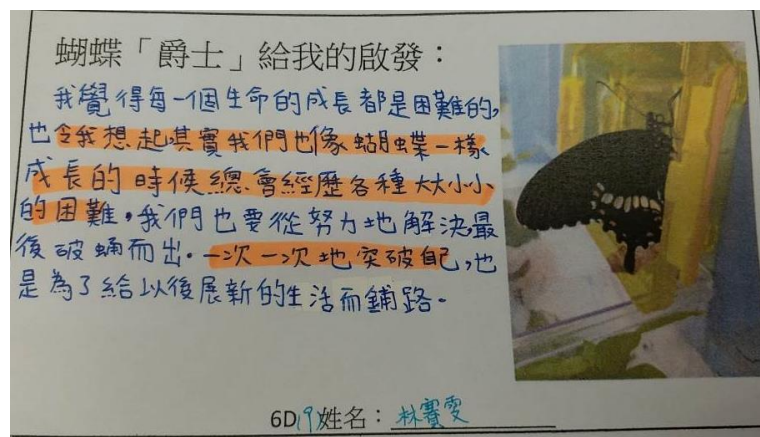 蝴蝶「爵士」給我的啟發：
我覺得每一個生命的成長都是困難的，
也令我想起其實我們也像蝴蝶一樣
成長的時候總會經歷各種大大小小
的困難，我們也要從努力地解決，最
後破蛹而出。一次一次地突破自己，也
是為了給以後展新的生活而鋪路。
6D19姓名：林賽雯